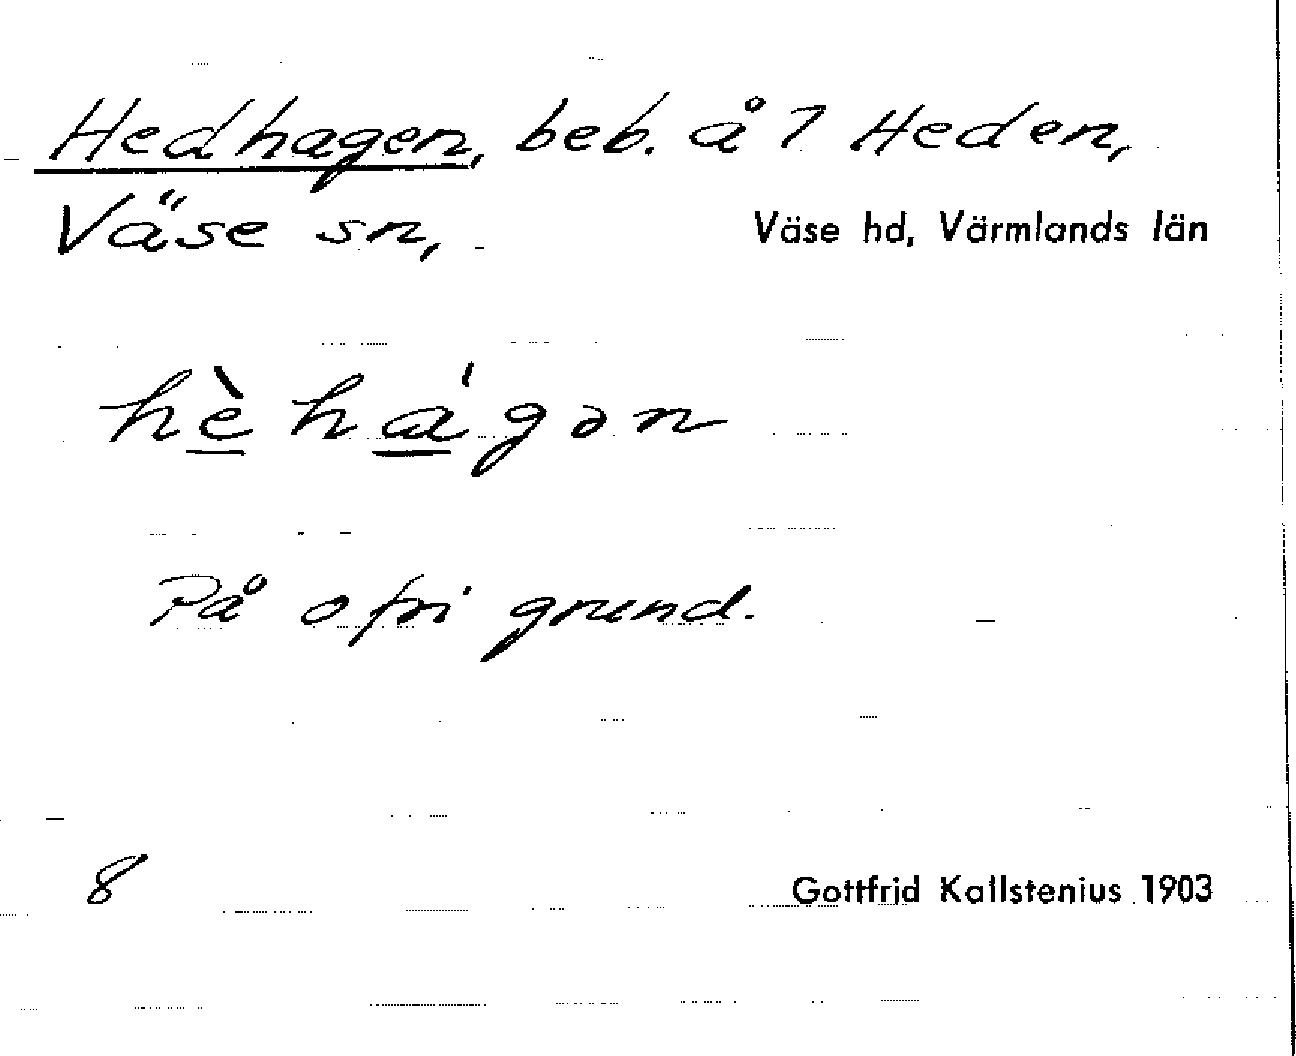 Hedhagen, beb. å 7 Heden,
Väse sn, Väse hd, Värmlands län
hè̲ há̲gən
På ofri grund.
8 Gottfrid Kallstenius 1903